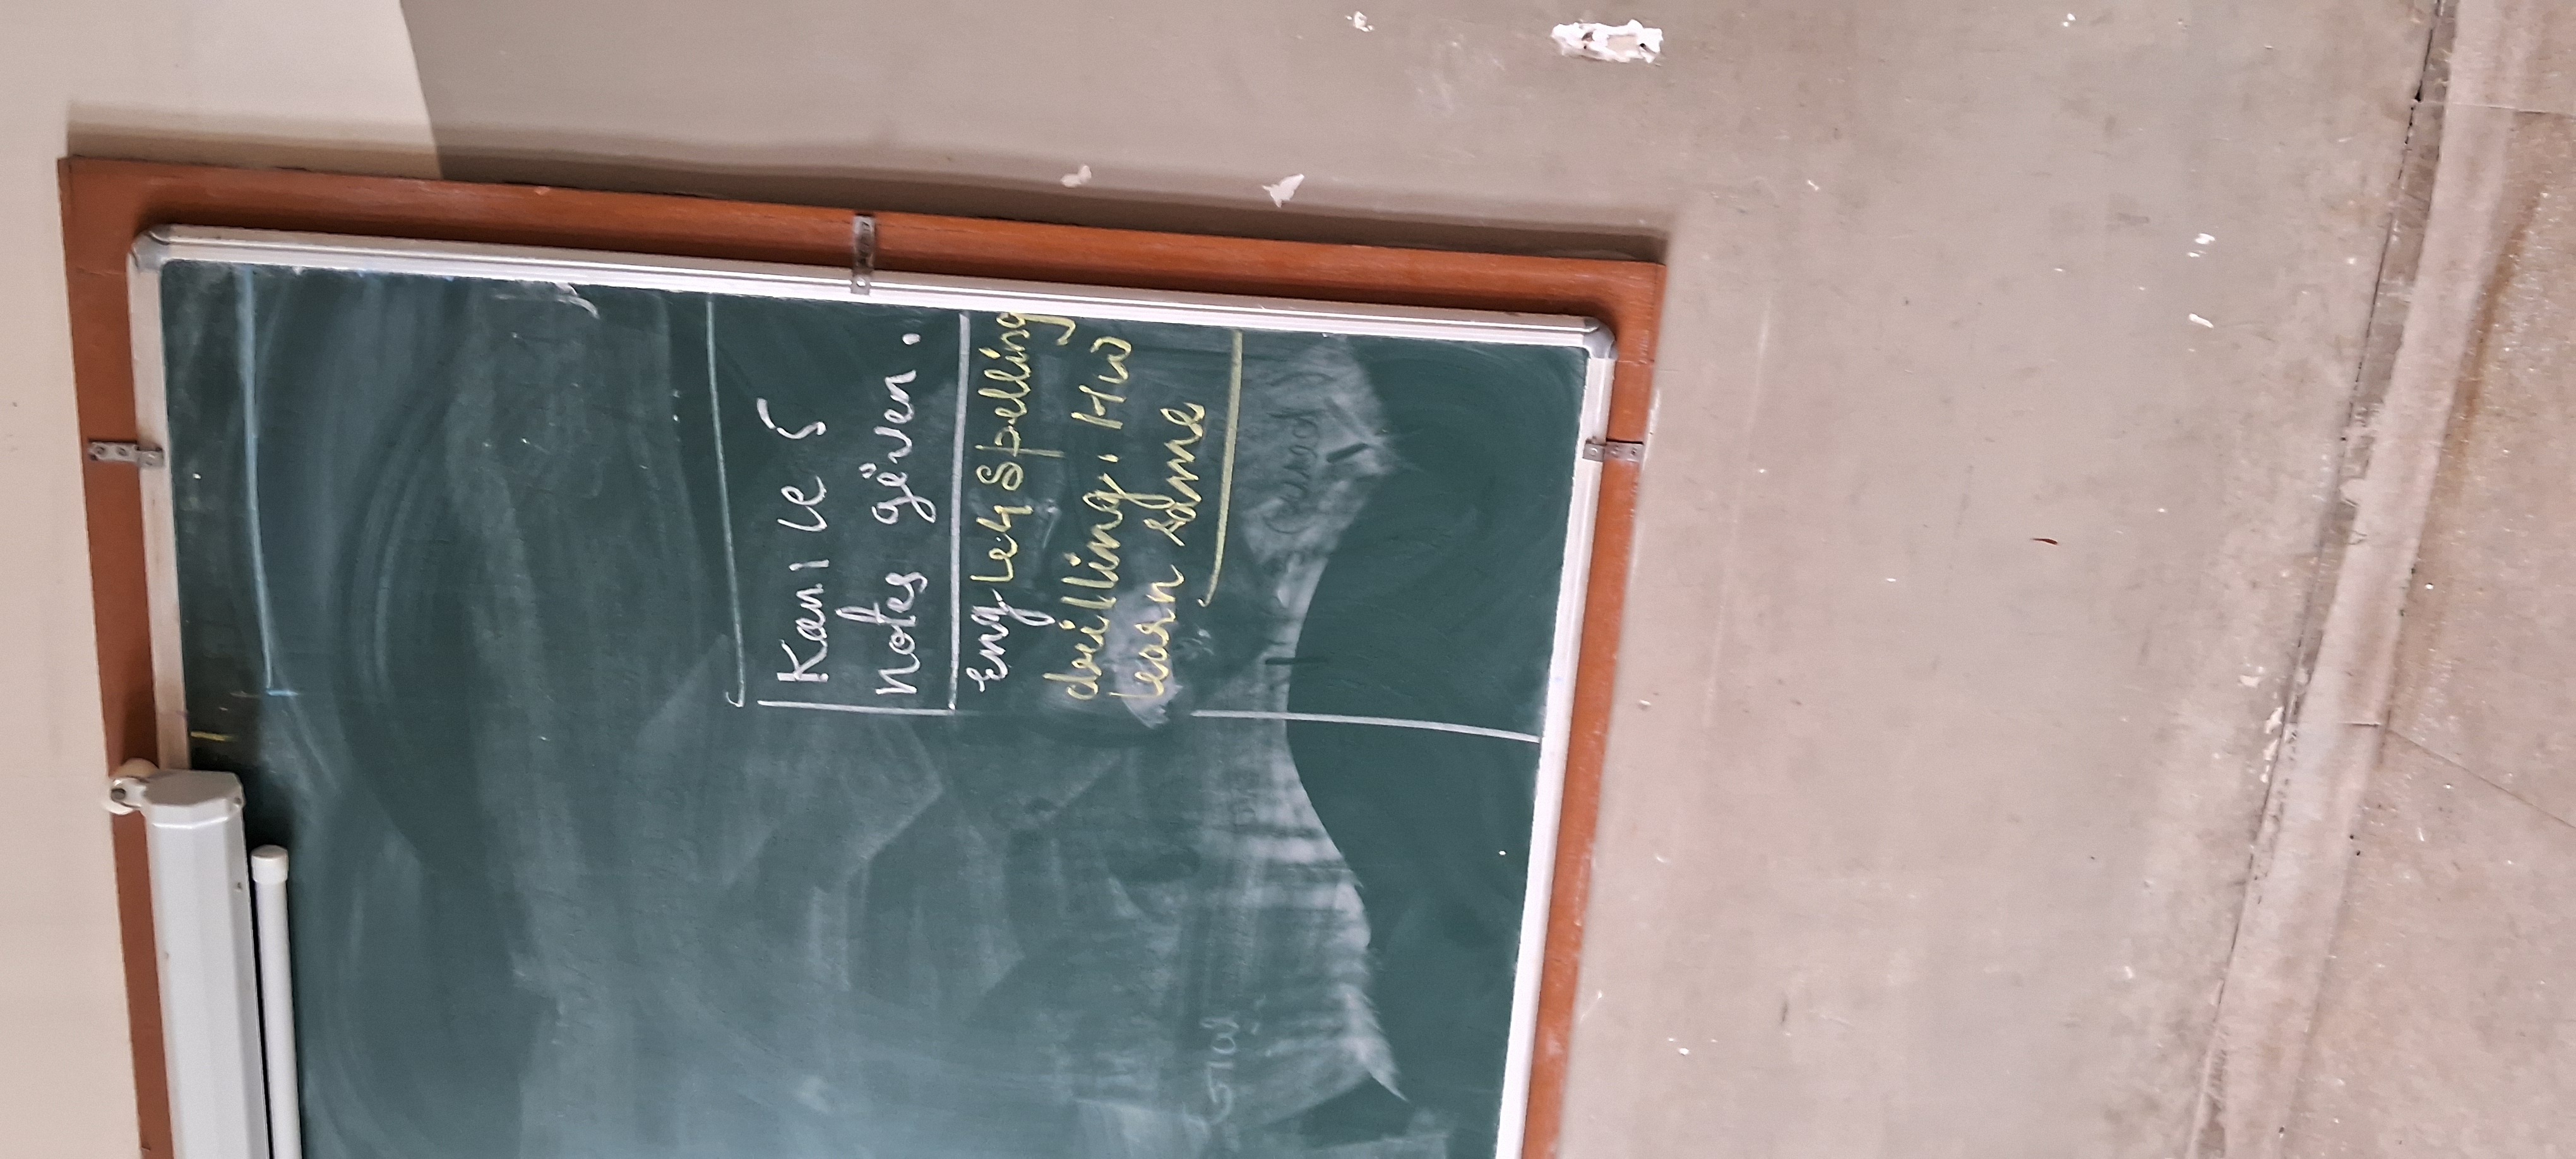 Kan le 5
notes given.
Eng Le4 Spelling
drilling. HW
learn same